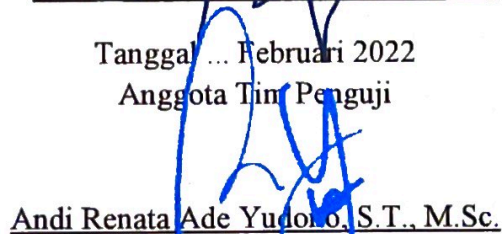 Tanggal ... Februari 2022
Anggota Tim Penguji
Andi Renata Ade Yudono, S.T., M.Sc.